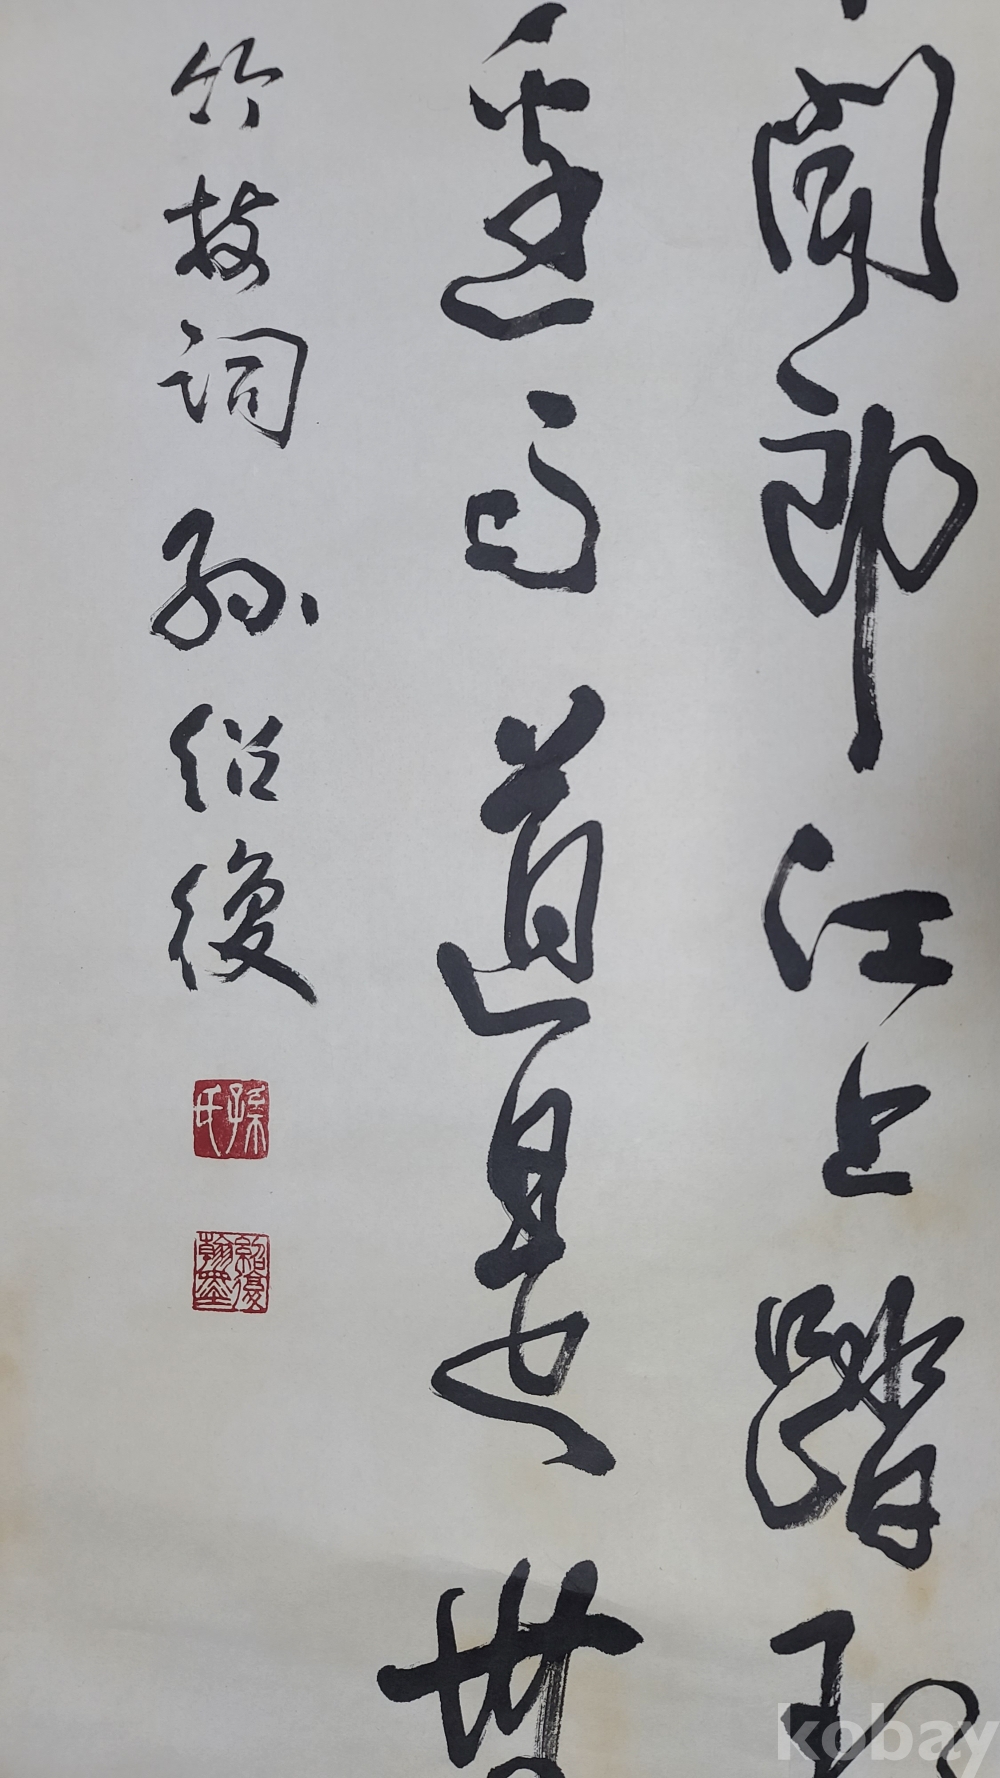 聞郎江上踏
邊雨道是無
竹枝詞 孫紹復
孫氏
紹復翰墨
kobay